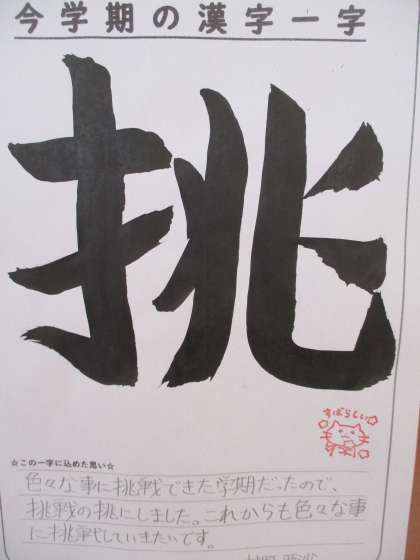 今学期の漢字一字
挑
すばらしい
☆この一字に込めた思い☆
色々な事に挑戦できた学期だったので、
挑戦の挑にしました。これからも色々な事
に挑戦していきたいです。